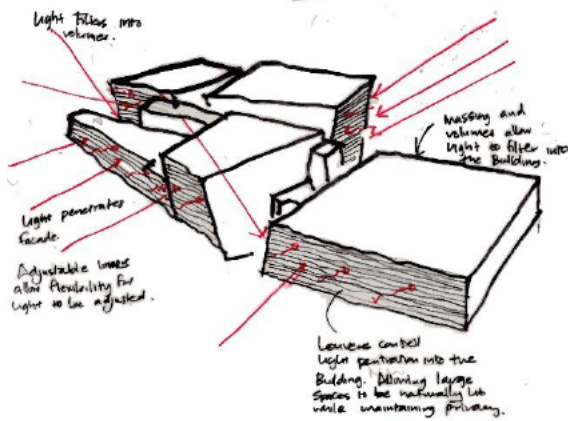 Light filters into
volumes.
Massing and
volumes allow
light to filter into
the Building.
Light penetrates
facade.
Adjustable
allow flexibility for
light to be adjusted.
Louvers control
light pentration into the
Building. Allowing large
spaces to be naturally lit
while maintaining privacy.